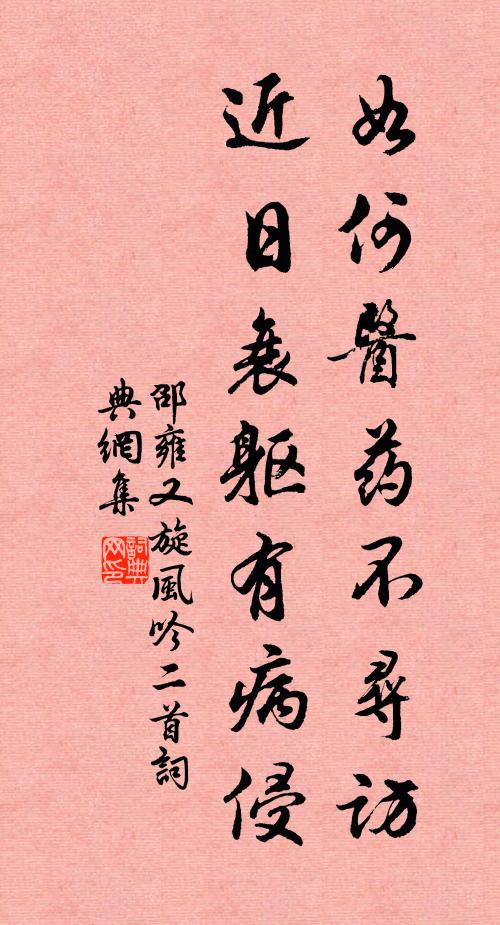 如何醫药不尋訪
近日衰軀有病侵
邵雍又旋風吟二首詞
典網集
詞典網印